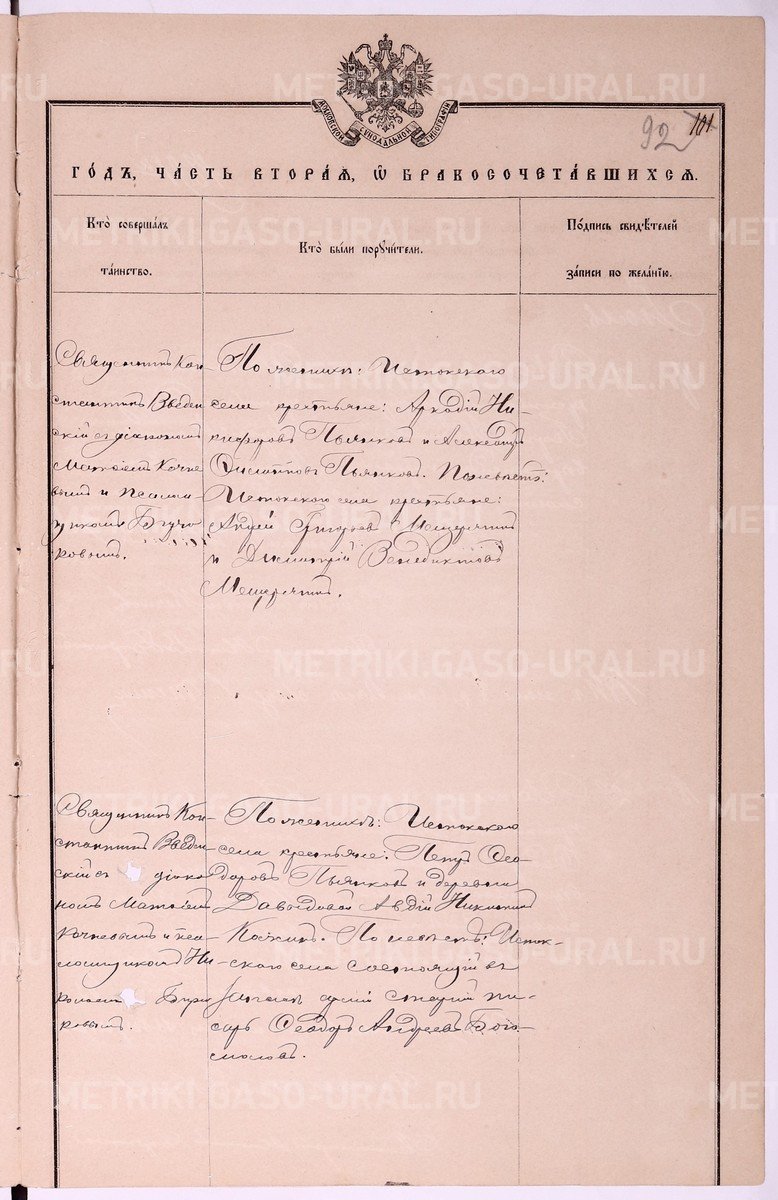 МОСКОВСКОЙ СѴНОДАЛЬНОЙ ТИПОГРАФІИ
92 101
ГОДЪ, ЧАСТЬ ВТОРАЯ, Ѡ БРАКОСОЧЕТАВШИХСЯ.
Кто совершалъ таинство.
Кто были поручители.
Подпись свидѣтелей записи по желанію.
Священникъ Кон-
стантинъ Введен
скій съ діакономъ
Матѳіемъ Кочне
вымъ и псалом
щикомъ
ковымъ.
По женихѣ: Истокского
села крестьяне: Аркадій Ни-
кифоровъ Пьянковъ и Александръ
Пьянковъ. По невѣстѣ:
Истокского села крестьяне:
Андрей Григорьевъ Мещерягинъ
и Димитрій Венедиктовъ
Мещерягинъ.
Священникъ Кон-
стантинъ Введен
скій съ діако
номъ Матѳіемъ
Кочневымъ и пса
ломщикомъ Ни
ковымъ.
По женихѣ: Истокского
села крестьяне: Петръ Ѳео
доровъ Пьянковъ и деревни
Давыдовой Авдій Никитинъ
По невѣстѣ: Исток-
скаго села состоящій въ
запасѣ арміи старшій пи-
сарь Ѳеодоръ Андреевъ Бого-
моловъ.
METRIKI.GASO-URAL.RU